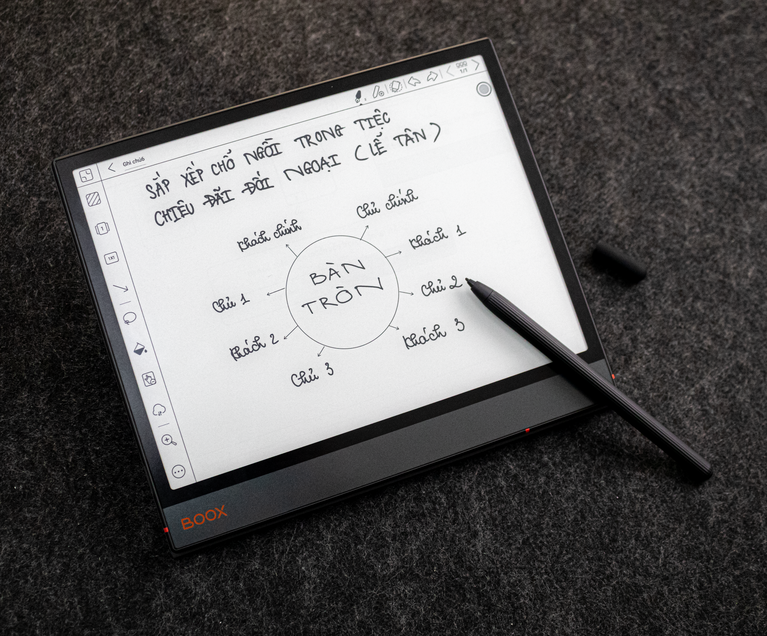 Ghi chú
SẮP XẾP CHỖ NGỒI TRONG TIỆC
CHIÊU ĐÃI ĐỐI NGOẠI (LỄ TÂN)
Khách chính
Chủ chính
Chủ 1
Khách 1
BÀN
TRÒN
Khách 2
Chủ 2
Chủ 3
Khách 3
BOOX